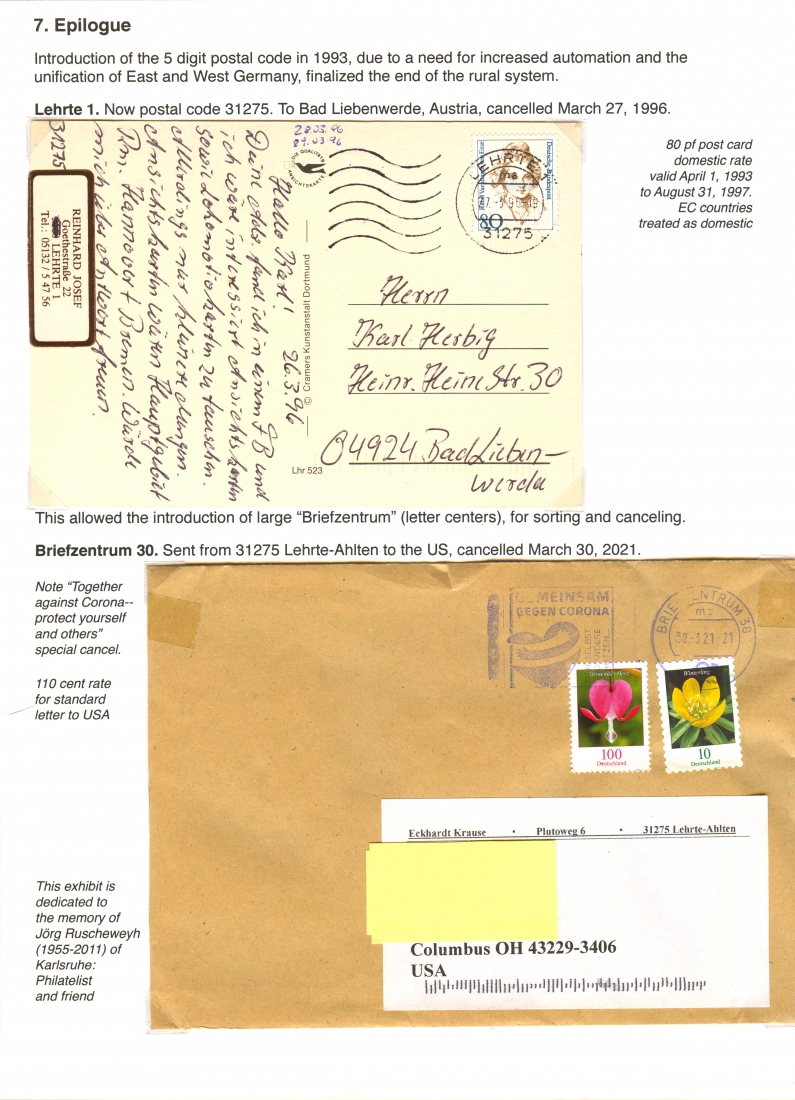 7. Epilogue
Introduction of the 5 digit postal code in 1993, due to a need for increased automation and the
unification of East and West Germany, finalized the end of the rural system.
Lehrte 1. Now postal code 31275. To Bad Liebenwerde, Austria, cancelled March 27, 1996.
80 pf post card
domestic rate
valid April 1, 1993
to August 31, 1997.
EC countries
treated as domestic
28.03.96
DIE QUALITÄTS
ANSICHTSKARTE
Deutsche Bundespost
80
LEHRTE 1
ma
27.-3.96-15
31275
31275
REINHARD JOSEF
Goethestraße 22
LEHRTE 1
Tel.: 05132 / 5 47 56
Hallo Karl! 26.3.96
Deine Adr. fand ich in einem FB und
ich wäre interessiert Ansichtskarten
sowie Lokomotivkarten zu tauschen.
Allerdings nur kleinere Mengen.
Ansichtskarten wären Hauptgebiet
Rm. Hannover + Bremen. Würde
mich über Antwort freuen.
© Cramers Kunstanstalt Dortmund
Lhr 523
Herrn
Karl Herbig
Heinr. Heine Str. 30
04924 Bad Lieben-
werda
This allowed the introduction of large “Briefzentrum” (letter centers), for sorting and canceling.
Briefzentrum 30. Sent from 31275 Lehrte-Ahlten to the US, cancelled March 30, 2021.
Note “Together
against Corona--
protect yourself
and others”
special cancel.
110 cent rate
for standard
letter to USA
GEMEINSAM
GEGEN CORONA
BRIEFZENTRUM 30
mc
30.-3.21 21
Tränendes Herz
100
Deutschland
Winterling
10
Deutschland
Eckhardt Krause • Plutoweg 6 • 31275 Lehrte-Ahlten
Columbus OH 43229-3406
USA
This exhibit is
dedicated to
the memory of
Jörg Ruscheweyh
(1955-2011) of
Karlsruhe:
Philatelist
and friend